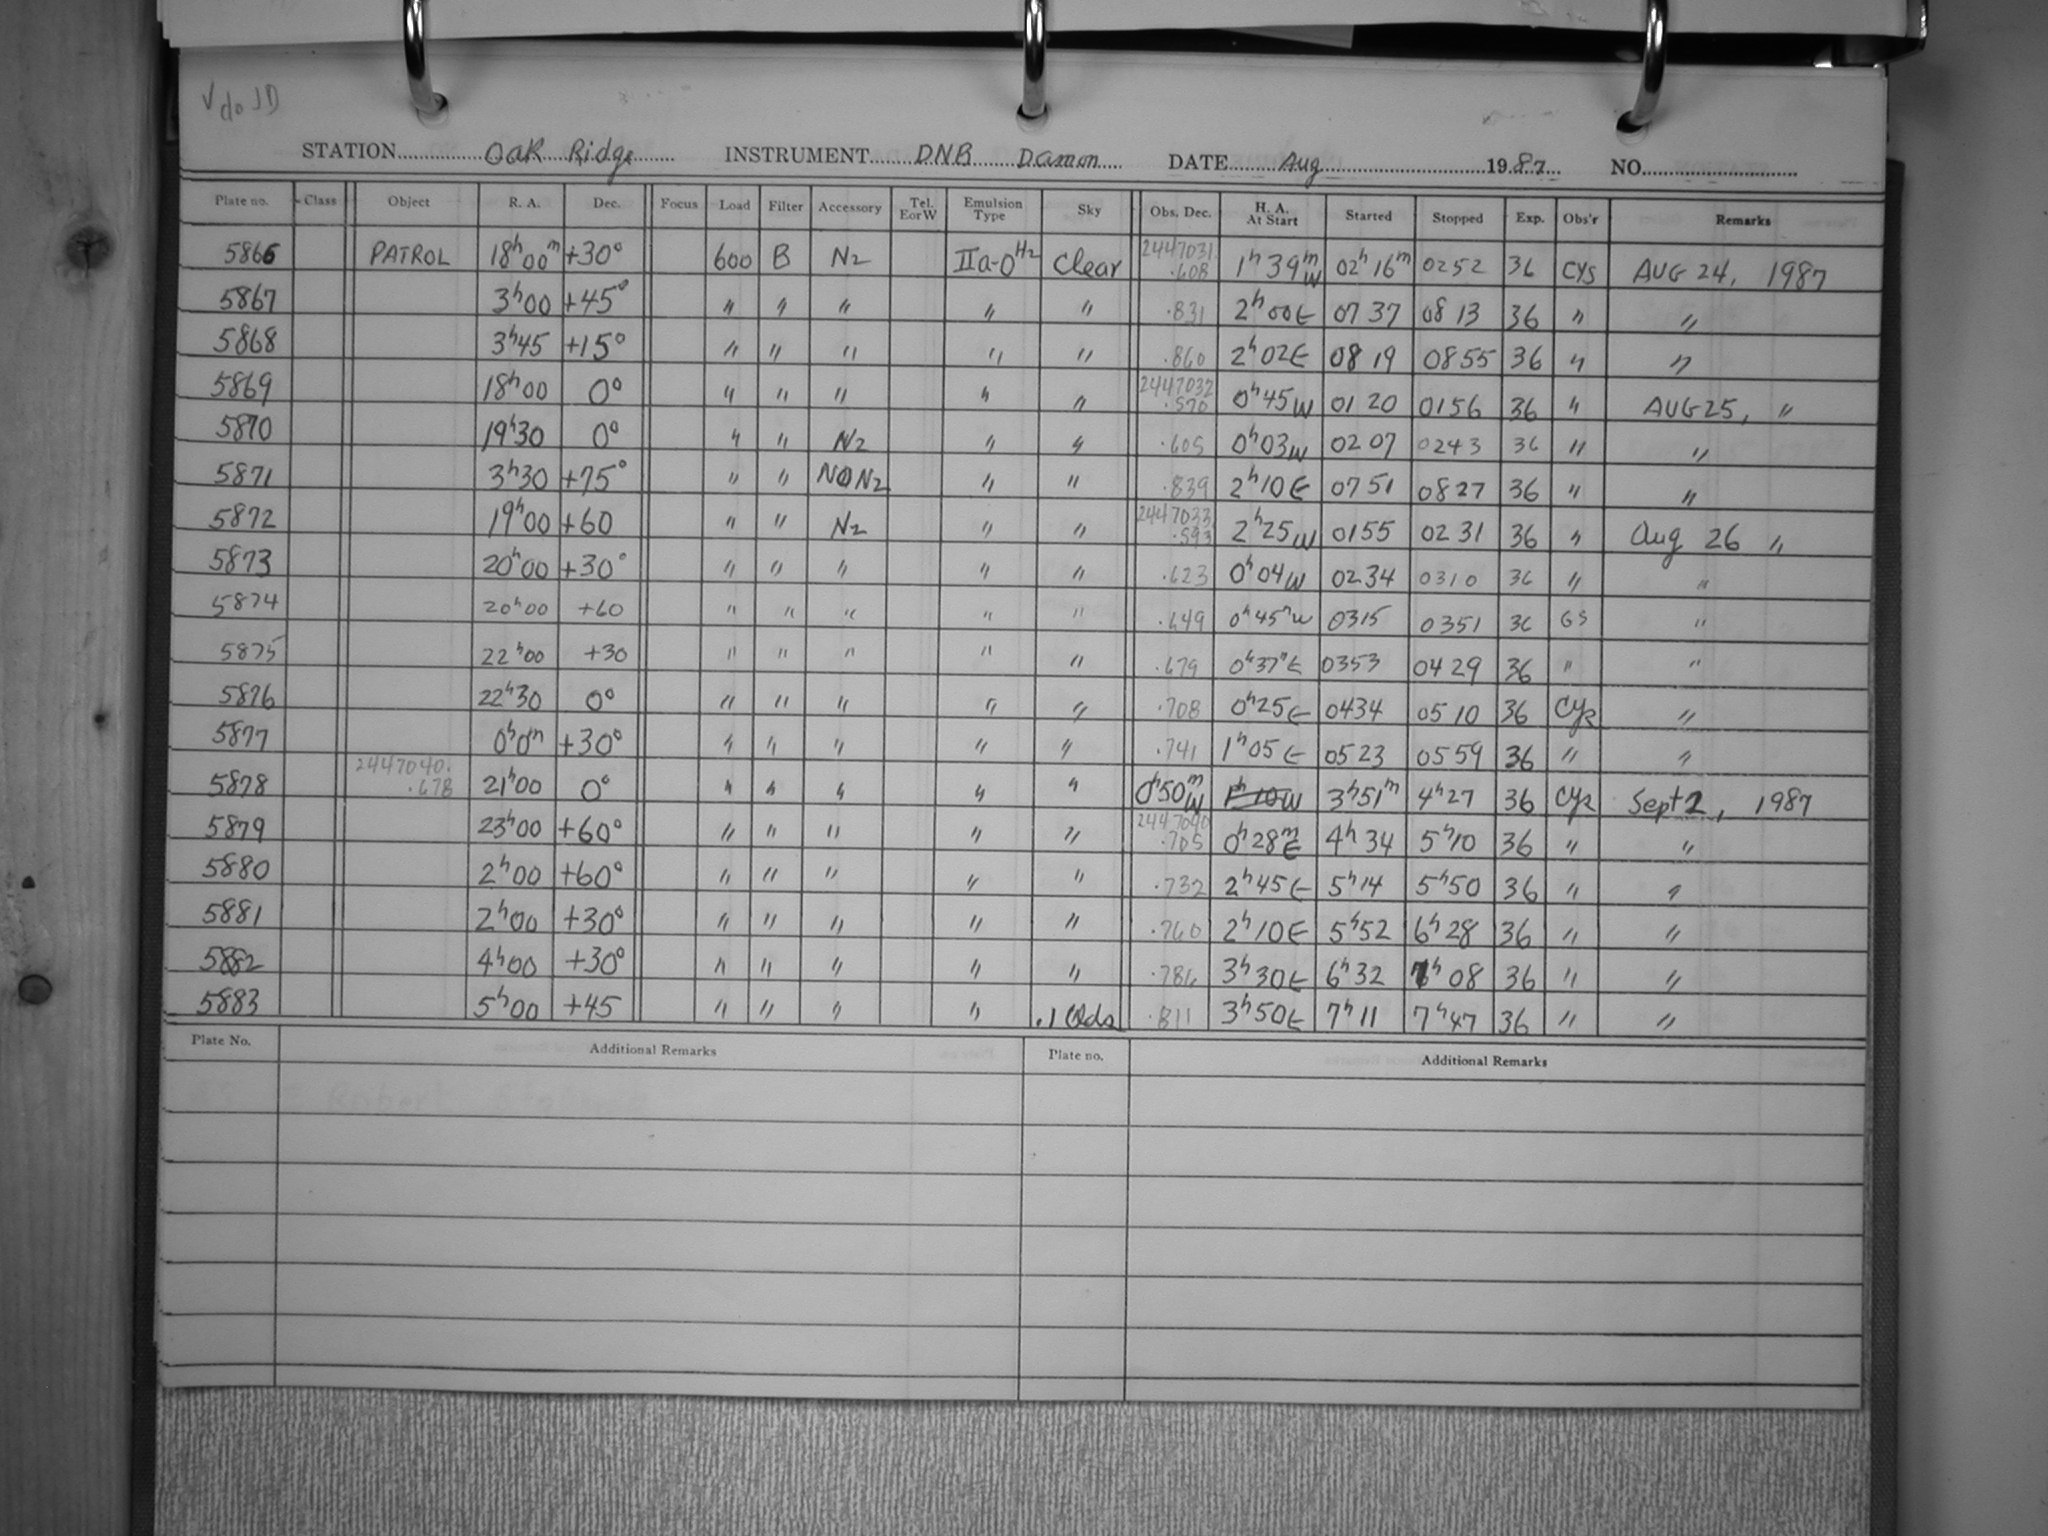 V do JD
STATION Oak Ridge INSTRUMENT DNB Damon DATE Aug 1987 NO.
Plate no. Class Object R. A. Dec. Focus Load Filter Accessory Tel. E or W Emulsion Type Sky Obs. Dec. H. A. At Start Started Stopped Exp. Obs'r Remarks
5866 PATROL 18h 00m +30° 600 B N2 IIa-O H2 Clear 2447031 .608 1h 39m W 02h 16m 0252 36 CYS AUG 24, 1987
5867 3h00 +45° " " " " " .831 2h 00E 0737 0813 36 " "
5868 3h45 +15° " " " " " .860 2h 02E 0819 0855 36 " "
5869 18h00 0° " " " " " 2447032 .570 0h45W 0120 0156 36 " AUG 25, "
5870 19h30 0° " " N2 " " .605 0h03W 0207 0243 36 " "
5871 3h30 +75° " " NO N2 " " .839 2h10E 0751 0827 36 " "
5872 19h00 +60 " " N2 " " 2447033 .593 2h25W 0155 0231 36 " Aug 26 "
5873 20h00 +30° " " " " " .623 0h04W 0234 0310 36 " "
5874 20h00 +60 " " " " " .649 0h45mW 0315 0351 36 GS "
5875 22h00 +30 " " " " " .679 0h37mE 0353 0429 36 " "
5876 22h30 0° " " " " " .708 0h25E 0434 0510 36 CYR "
5877 0h0m +30° " " " " " .741 1h05E 0523 0559 36 " "
5878 2447040. .678 21h00 0° " " " " " 0h50m W 1h10W 3h51m 4h27 36 CYR Sept 2, 1987
5879 23h00 +60° " " " " " 2447040 .705 0h28mE 4h34 5h10 36 " "
5880 2h00 +60° " " " " " .732 2h45E 5h14 5h50 36 " "
5881 2h00 +30° " " " " " .760 2h10E 5h52 6h28 36 " "
5882 4h00 +30° " " " " " .786 3h30E 6h32 7h08 36 " "
5883 5h00 +45 " " " " .1 Clds .811 3h50E 7h11 7h47 36 " "
Plate No. Additional Remarks Plate no. Additional Remarks